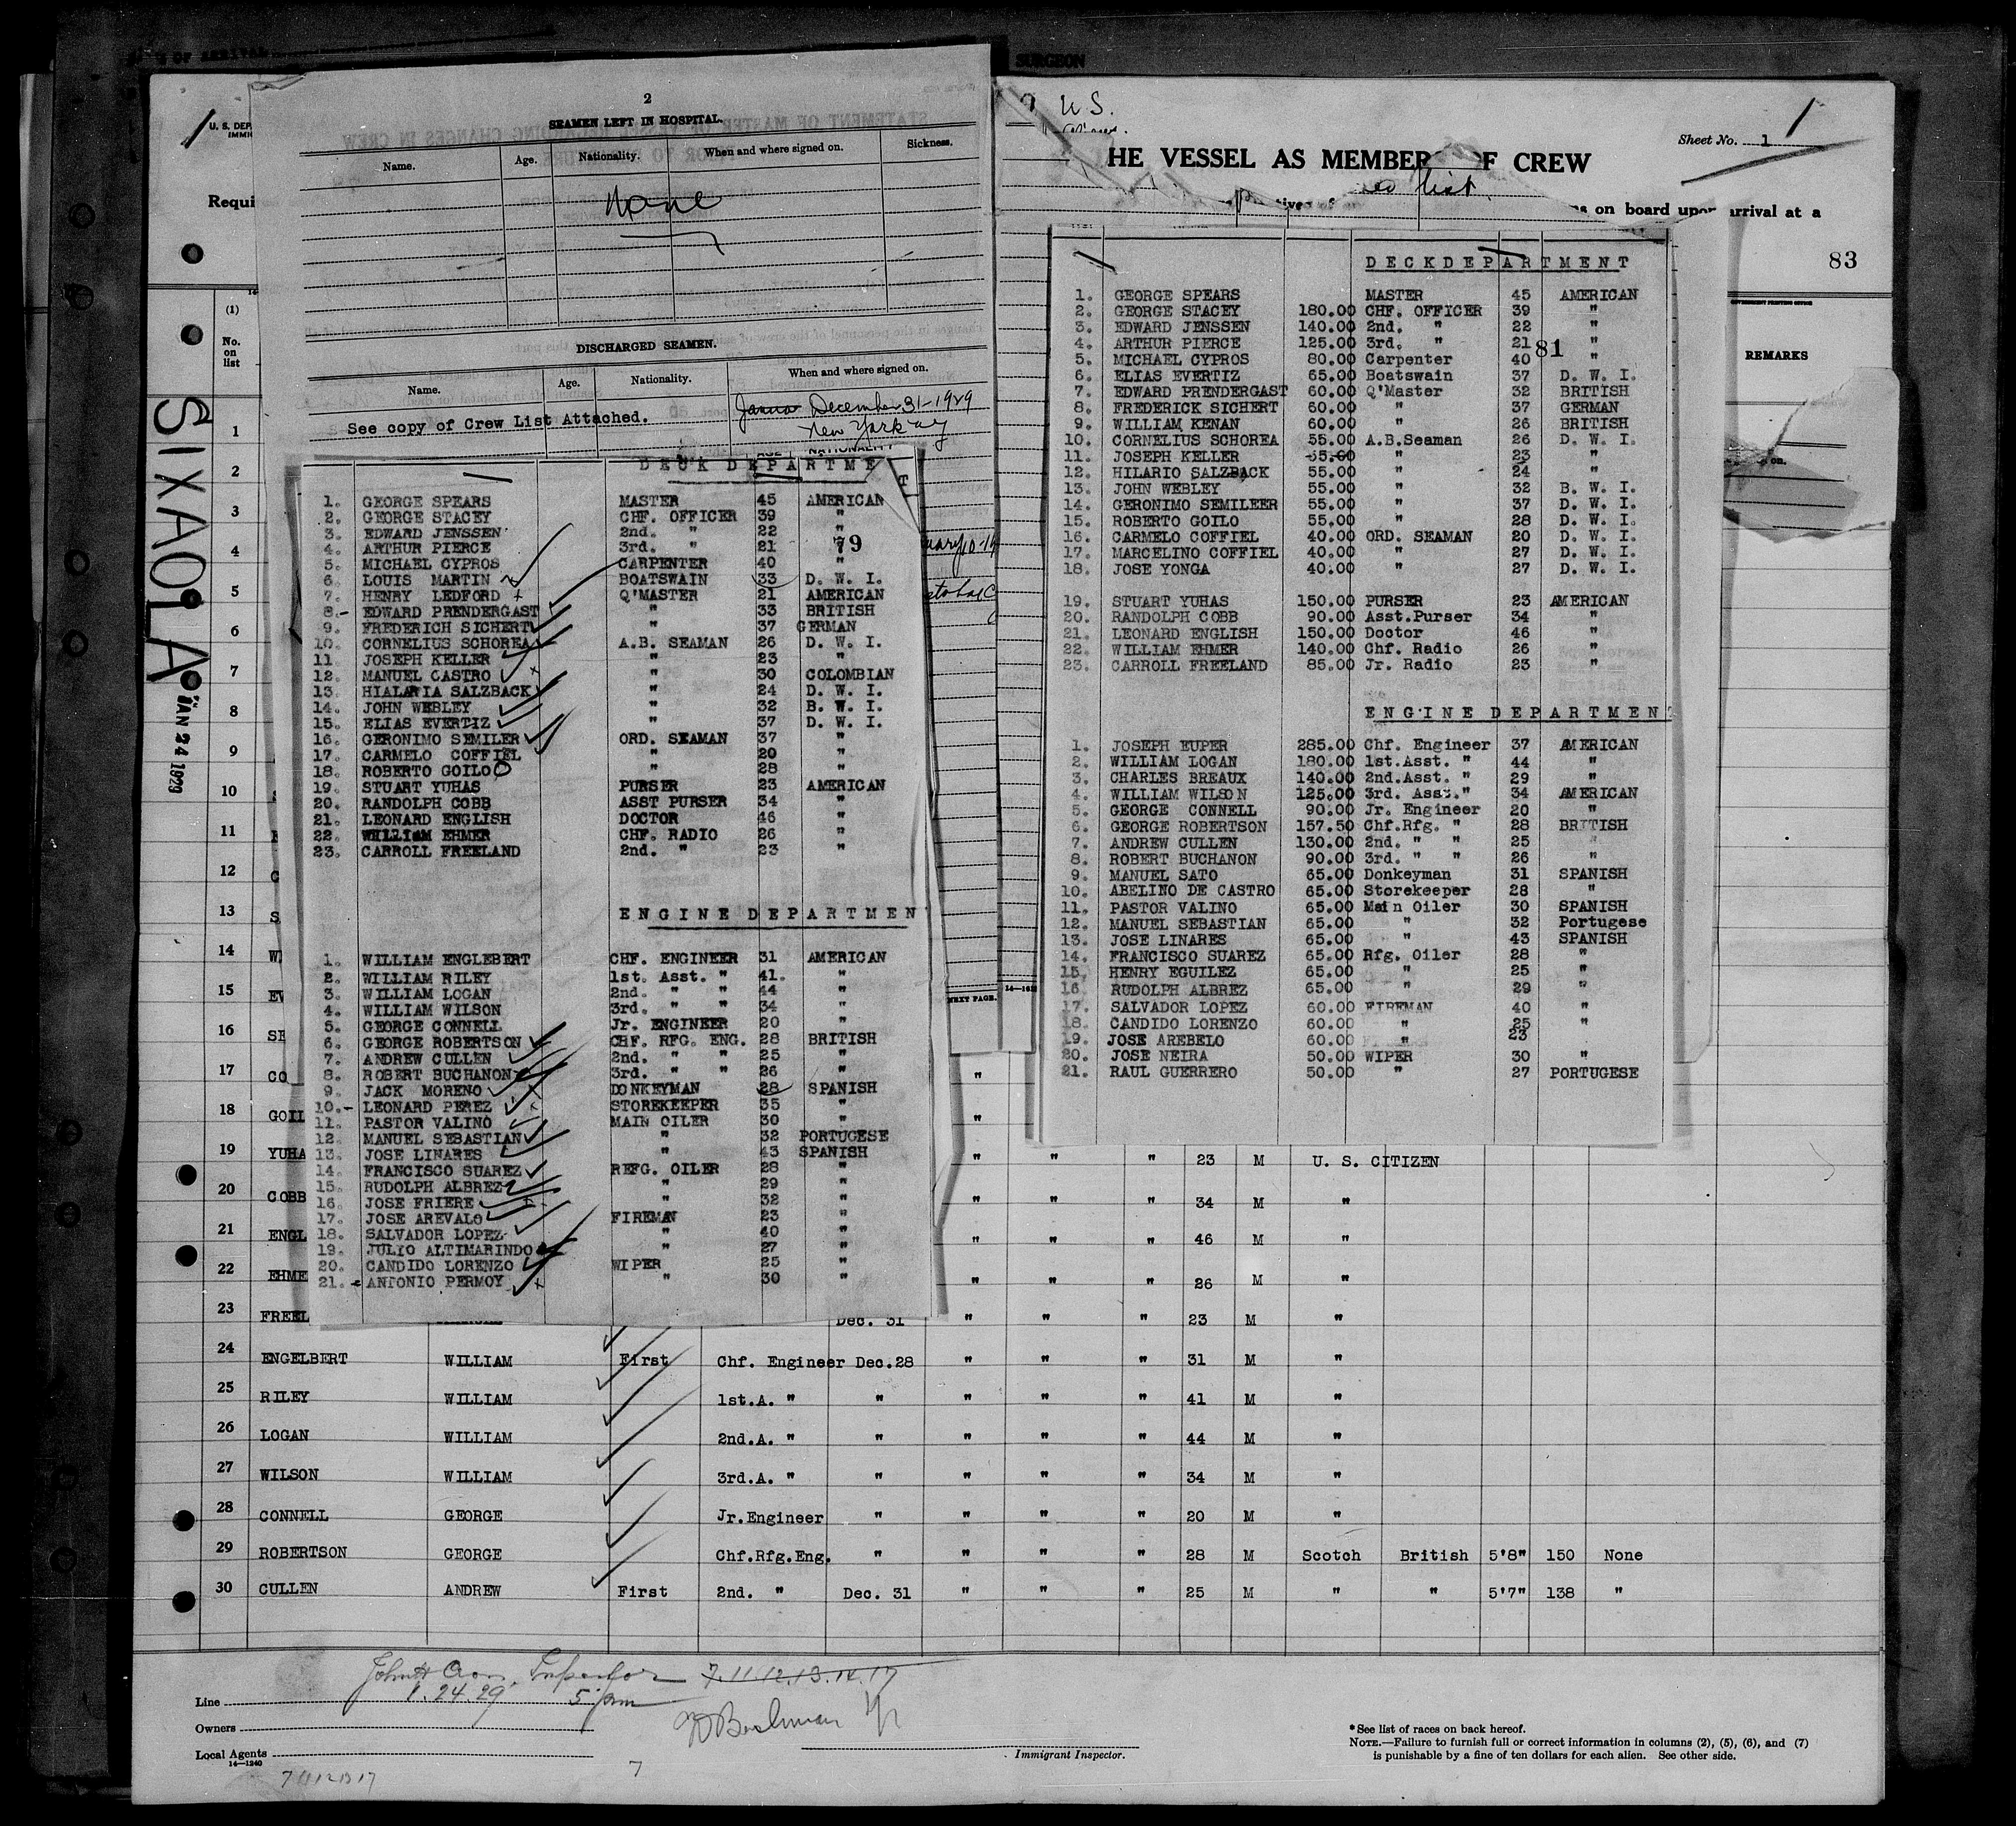 SURGEON
U. S. DEP
IMMI
Requi
(1)
No.
on
list
SIXAOLA
JAN 24 1929
2
SEAMEN LEFT IN HOSPITAL.
Name. Age. Nationality. When and where signed on. Sickness.
None
DISCHARGED SEAMEN.
Name. Age. Nationality. When and where signed on.
See copy of Crew List Attached. December 31-1929
New York
NATIONALITY
DECK DEPARTME
1. GEORGE SPEARS MASTER 45 AMERICAN
2. GEORGE STACEY CHF. OFFICER 39 "
3. EDWARD JENSSEN 2nd. " 22 "
4. ARTHUR PIERCE 3rd. " 21 "
79
5. MICHAEL CYPROS CARPENTER 40 "
6. LOUIS MARTIN BOATSWAIN 33 D. W. I.
7. HENRY LEDFORD Q'MASTER 21 AMERICAN
8. EDWARD PRENDERGAST " 33 BRITISH
9. FREDERICH SICHERT " 37 GERMAN
10. CORNELIUS SCHOREA A.B. SEAMAN 26 D. W. I.
11. JOSEPH KELLER " 23 "
12. MANUEL CASTRO " 30 COLOMBIAN
13. HIALARIA SALZBACK " 24 D. W. I.
14. JOHN WEBLEY " 32 B. W. I.
15. ELIAS EVERTIZ " 37 D. W. I.
16. GERONIMO SEMILER ORD. SEAMAN 37 "
17. CARMELO COFFIEL " 20 "
18. ROBERTO GOILO " 28 "
19. STUART YUHAS PURSER 23 AMERICAN
20. RANDOLPH COBB ASST PURSER 34 "
21. LEONARD ENGLISH DOCTOR 46 "
22. WILLIAM EHMER CHF. RADIO 26 "
23. CARROLL FREELAND 2nd. " 23 "
ENGINE DEPARTMEN
1. WILLIAM ENGLEBERT CHF. ENGINEER 31 AMERICAN
2. WILLIAM RILEY 1st. Asst. " 41. "
3. WILLIAM LOGAN 2nd. " " 44 "
4. WILLIAM WILSON 3rd. " " 34 "
5. GEORGE CONNELL Jr. ENGINEER 20 "
6. GEORGE ROBERTSON CHF. RFG. ENG. 28 BRITISH
7. ANDREW CULLEN 2nd. " " 25 "
8. ROBERT BUCHANON 3rd. " " 26 "
9. JACK MORENO DONKEYMAN 28 SPANISH
10. LEONARD PEREZ STOREKEEPER 35 "
11. PASTOR VALINO MAIN OILER 30 "
12. MANUEL SEBASTIAN " 32 PORTUGESE
13. JOSE LINARES " 43 SPANISH
14. FRANCISCO SUAREZ REFG. OILER 28 "
15. RUDOLPH ALBREZ " 29 "
16. JOSE FRIERE " 32 "
17. JOSE AREVALO FIREMAN 23 "
18. SALVADOR LOPEZ " 40 "
19. JULIO ALTIMARINDO " 27 "
20. CANDIDO LORENZO WIPER 25 "
21. ANTONIO PERMOY " 30 "
U S.
Sheet No. 1
HE VESSEL AS MEMBER OF CREW
list
s on board upon arrival at a
83
REMARKS
NEXT PAGE.
DECK DEPARTMENT
1. GEORGE SPEARS MASTER 45 AMERICAN
2. GEORGE STACEY 180.00 CHF. OFFICER 39 "
3. EDWARD JENSSEN 140.00 2nd. " 22 "
4. ARTHUR PIERCE 125.00 3rd. " 21 "
81
5. MICHAEL CYPROS 80.00 Carpenter 40 "
6. ELIAS EVERTIZ 65.00 Boatswain 37 D. W. I.
7. EDWARD PRENDERGAST 60.00 Q'Master 32 BRITISH
8. FREDERICK SICHERT 60.00 " 37 GERMAN
9. WILLIAM KENAN 60.00 " 26 BRITISH
10. CORNELIUS SCHOREA 55.00 A.B.Seaman 26 D. W. I.
11. JOSEPH KELLER 55.00 " 23 "
12. HILARIO SALZBACK 55.00 " 24 "
13. JOHN WEBLEY 55.00 " 32 B. W. I.
14. GERONIMO SEMILEER 55.00 " 37 D. W. I.
15. ROBERTO GOILO 55.00 " 28 D. W. I.
16. CARMELO COFFIEL 40.00 ORD. SEAMAN 20 D. W. I.
17. MARCELINO COFFIEL 40.00 " 27 D. W. I.
18. JOSE YONGA 40.00 " 27 D. W. I.
19. STUART YUHAS 150.00 PURSER 23 AMERICAN
20. RANDOLPH COBB 90.00 Asst.Purser 34 "
21. LEONARD ENGLISH 150.00 Doctor 46 "
22. WILLIAM EHMER 140.00 Chf. Radio 26 "
23. CARROLL FREELAND 85.00 Jr. Radio 23 "
ENGINE DEPARTMENT
1. JOSEPH EUPER 285.00 Chf. Engineer 37 AMERICAN
2. WILLIAM LOGAN 180.00 1st.Asst. " 44 "
3. CHARLES BREAUX 140.00 2nd.Asst. " 29 "
4. WILLIAM WILSON 125.00 3rd. Asst." 34 AMERICAN
5. GEORGE CONNELL 90.00 Jr. Engineer 20 "
6. GEORGE ROBERTSON 157.50 Chf.Rfg. " 28 BRITISH
7. ANDREW CULLEN 130.00 2nd. " " 25 "
8. ROBERT BUCHANON 90.00 3rd. " " 26 "
9. MANUEL SATO 65.00 Donkeyman 31 SPANISH
10. ABELINO DE CASTRO 65.00 Storekeeper 28 "
11. PASTOR VALINO 65.00 Main Oiler 30 SPANISH
12. MANUEL SEBASTIAN 65.00 " 32 Portugese
13. JOSE LINARES 65.00 " 43 SPANISH
14. FRANCISCO SUAREZ 65.00 Rfg. Oiler 28 "
15. HENRY EGUILEZ 65.00 " 25 "
16. RUDOLPH ALBREZ 65.00 " 29 "
17. SALVADOR LOPEZ 60.00 FIREMAN 40 "
18. CANDIDO LORENZO 60.00 " 25 "
19. JOSE AREBELO 60.00 " 23
20. JOSE NEIRA 50.00 WIPER 30 "
21. RAUL GUERRERO 50.00 " 27 PORTUGESE
1
2
3
4
5
6
7
8
9
10
11
12
13
14
15
16
17 CO "
18 GOIL "
19 YUHA " " " 23 M U. S. CITIZEN
20 COBB " " " 34 M "
21 ENGL " " " 46 M "
22 EHME " " " 26 M "
23 FREEL Dec. 31 " " " 23 M "
24 ENGELBERT WILLIAM First Chf. Engineer Dec.28 " " " 31 M "
25 RILEY WILLIAM 1st.A. " " " " " 41 M "
26 LOGAN WILLIAM 2nd.A. " " " " " 44 M "
27 WILSON WILLIAM 3rd.A. " " " " " 34 M "
28 CONNELL GEORGE Jr.Engineer " " " " 20 M "
29 ROBERTSON GEORGE Chf.Rfg.Eng. " " " " 28 M Scotch British 5'8" 150 None
30 CULLEN ANDREW First 2nd. " Dec. 31 " " " 25 M " " 5'7" 138 "
Inspector 7.11.12.13.14.17
Line 1.24.29. 5 pm
Owners
Local Agents
14—1240
Immigrant Inspector.
* See list of races on back hereof.
NOTE.—Failure to furnish full or correct information in columns (2), (5), (6), and (7)
is punishable by a fine of ten dollars for each alien. See other side.
7